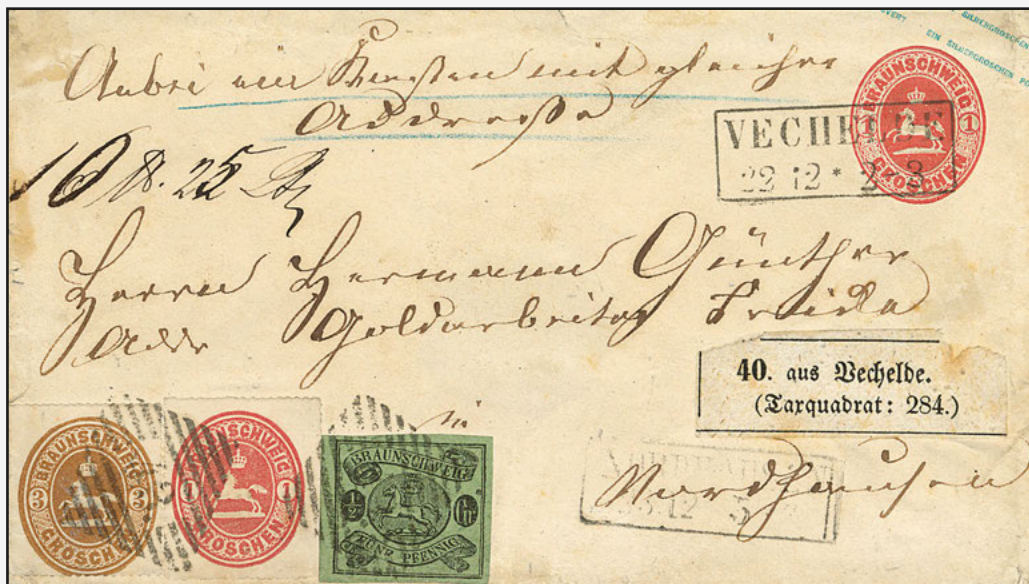 EIN SILBERGROSCHEN
Anbei ein Kasten mit gleicher
Addresse
BRAUNSCHWEIG
1 1
GROSCHEN
VECHELDE
22 12 * 2-3
Herrn Hermann Günther
Adr Goldarbeiter
40. aus Vechelde.
(Taxquadrat: 284.)
in
Nordhausen
BRAUNSCHWEIG
3 3
GROSCHEN
BRAUNSCHWEIG
1 1
GROSCHEN
BRAUNSCHWEIG
1/2 Gr
FÜNF PFENNIG